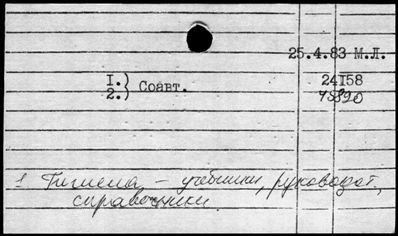 25.4.83 М.Л.
1.) Соавт. 24158
2.) 75890
1 Гигиена – учебники, руководст.,
справочники